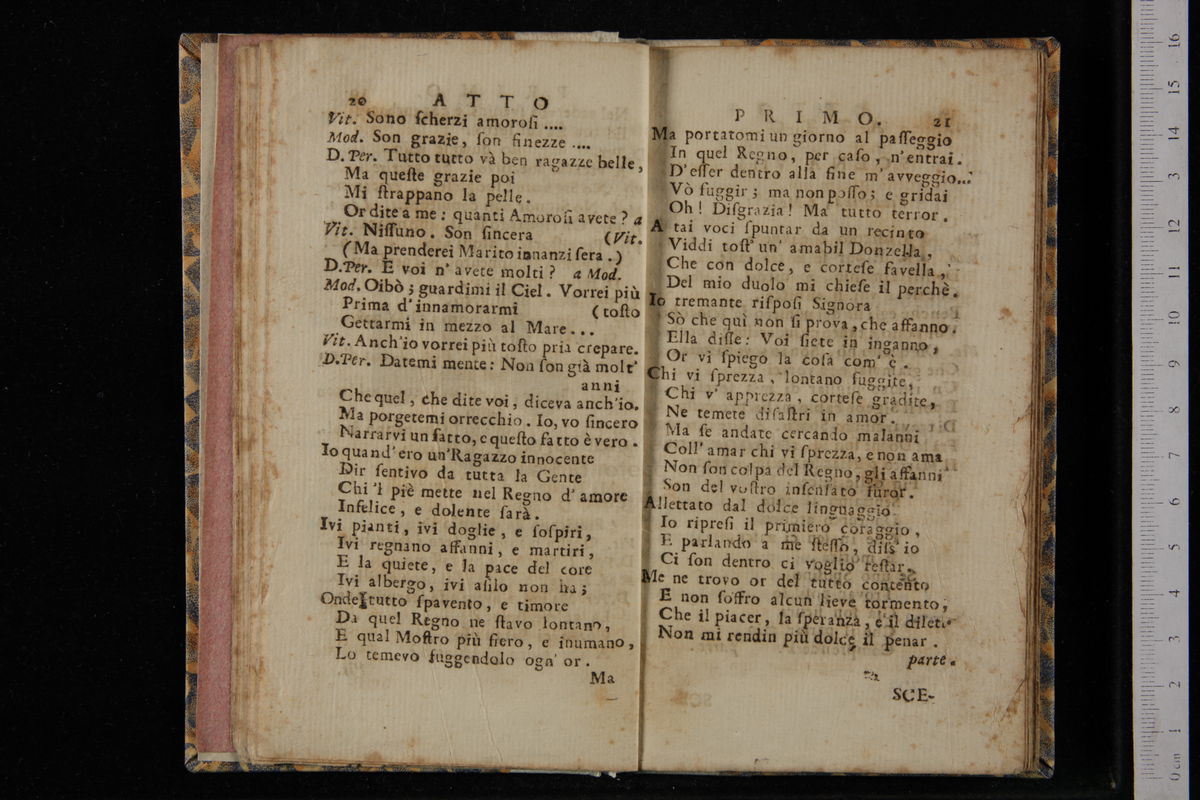 20 ATTO
Vit. Sono ſcherzi amoroſi ....
Mod. Son grazie, ſon finezze ....
D. Per. Tutto tutto và ben ragazze belle,
Ma queſte grazie poi
Mi ſtrappano la pelle.
Or dite a me: quanti Amoroſi avete? a
Vit. Niſſuno. Son ſincera (Vit.
(Ma prenderei Marito innanzi ſera.)
D.Per. E voi n' avete molti? a Mod.
Mod. Oibò; guardimi il Ciel. Vorrei più
Prima d'innamorarmi (toſto
Gettarmi in mezzo al Mare...
Vit. Anch'io vorrei più toſto pria crepare.
D.Per. Datemi mente: Non ſon già molt'
anni
Che quel, che dite voi, diceva anch'io.
Ma porgetemi orrecchio. Io, vo ſincero
Narrarvi un fatto, e queſto fatto è vero.
Io quand' ero un'Ragazzo innocente
Dir ſentivo da tutta la Gente
Chi 'l piè mette nel Regno d' amore
Infelice, e dolente ſarà.
Ivi pianti, ivi doglie, e ſoſpiri,
Ivi regnano affanni, e martiri,
E la quiete, e la pace del core
Ivi albergo, ivi aſilo non ha;
Onde tutto ſpavento, e timore
Da quel Regno ne ſtavo lontano,
E qual Moſtro più fiero, e inumano,
Lo temevo fuggendolo ogn' or.
Ma
PRIMO. 21
Ma portatomi un giorno al paſſeggio
In quel Regno, per caſo, n'entrai.
D'eſſer dentro alla fine m'avveggio...
Vò fuggir; ma non poſſo; e gridai
Oh! Diſgrazia! Ma tutto terror.
A tai voci ſpuntar da un recinto
Viddi toſt' un' amabil Donzella,
Che con dolce, e corteſe favella,
Del mio duolo mi chieſe il perchè.
Io tremante riſpoſi Signora
Sò che quì non ſi prova, che affanno.
Ella diſſe: Voi ſiete in inganno,
Or vi ſpiego la coſa com' è.
Chi vi ſprezza, lontano fuggite,
Chi v' apprezza, corteſe gradite,
Ne temete diſaſtri in amor.
Ma ſe andate cercando malanni
Coll' amar chi vi ſprezza, e non ama
Non ſon colpa del Regno, gli affanni
Son del voſtro inſenſato furor.
Allettato dal dolce linguaggio
Io ripreſi il primiero coraggio,
E parlando a me ſteſſo, diſs'io
Ci ſon dentro ci voglio reſtar.
Me ne trovo or del tutto contento
E non ſoffro alcun lieve tormento,
Che il piacer, la ſperanza, e il dilet
Non mi rendin più dolce il penar.
parte.
SCE-